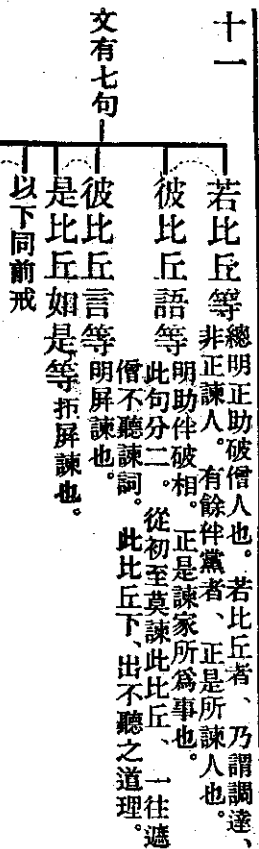 十一
文有七句
若比丘等
總明正助破僧人也。若比丘者、乃謂調達、
非正諫人。有餘伴黨者、正是所諫人也。
彼比丘語等
明助伴破相。正是諫家所爲事也。
此句分二。從初至莫諫此比丘、一往遮
僧不聽諫詞。此比丘下、出不聽之道理。
彼比丘言等 明屏諫也。
是比丘如是等 拒屏諫也。
以下同前戒